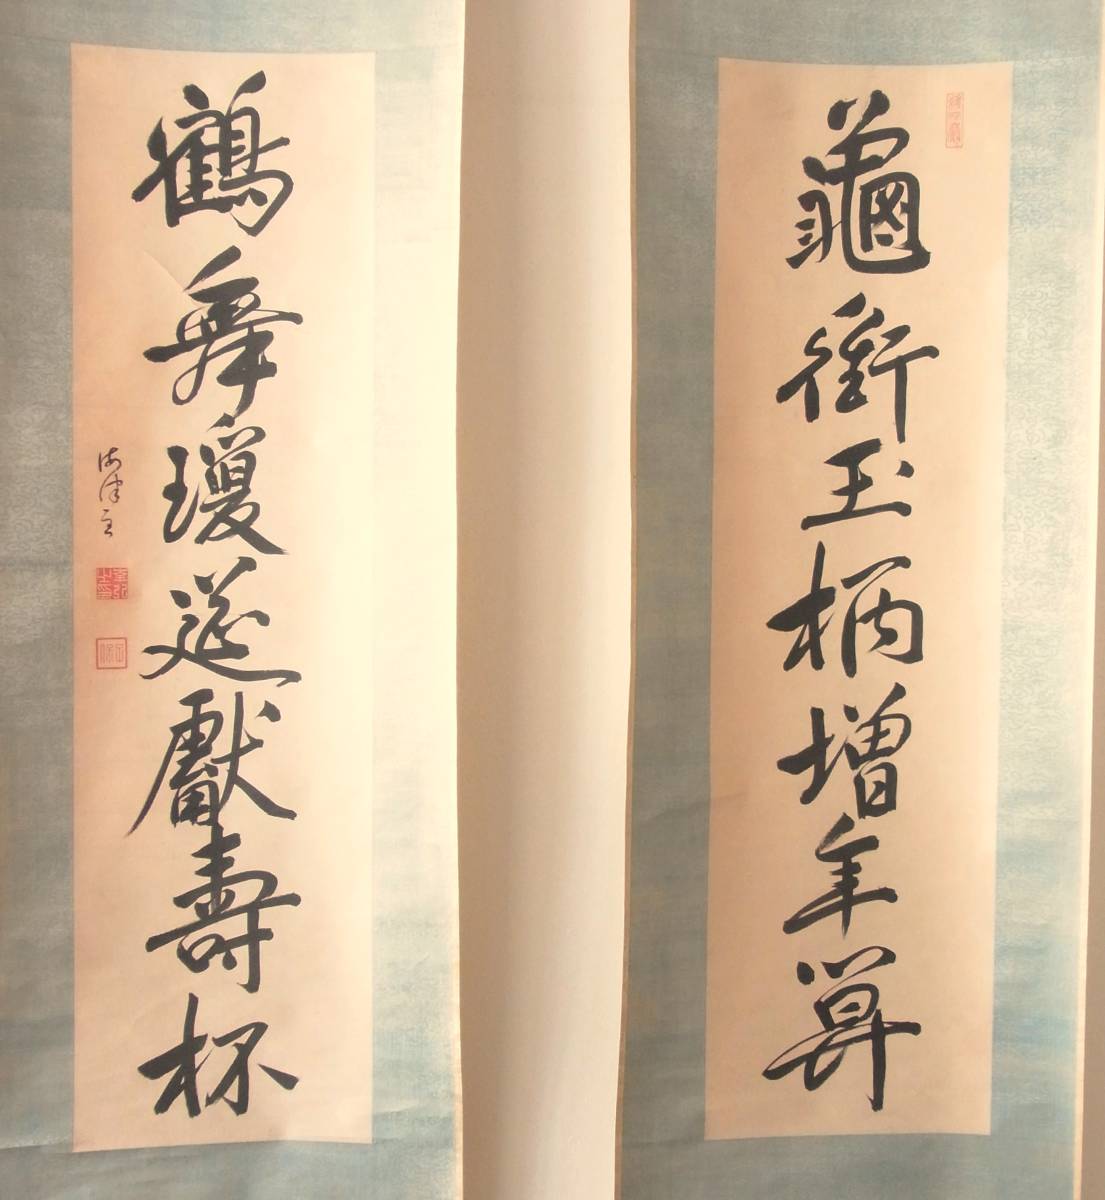 龜銜玉柄增年算
鶴舞瓊筵獻壽杯